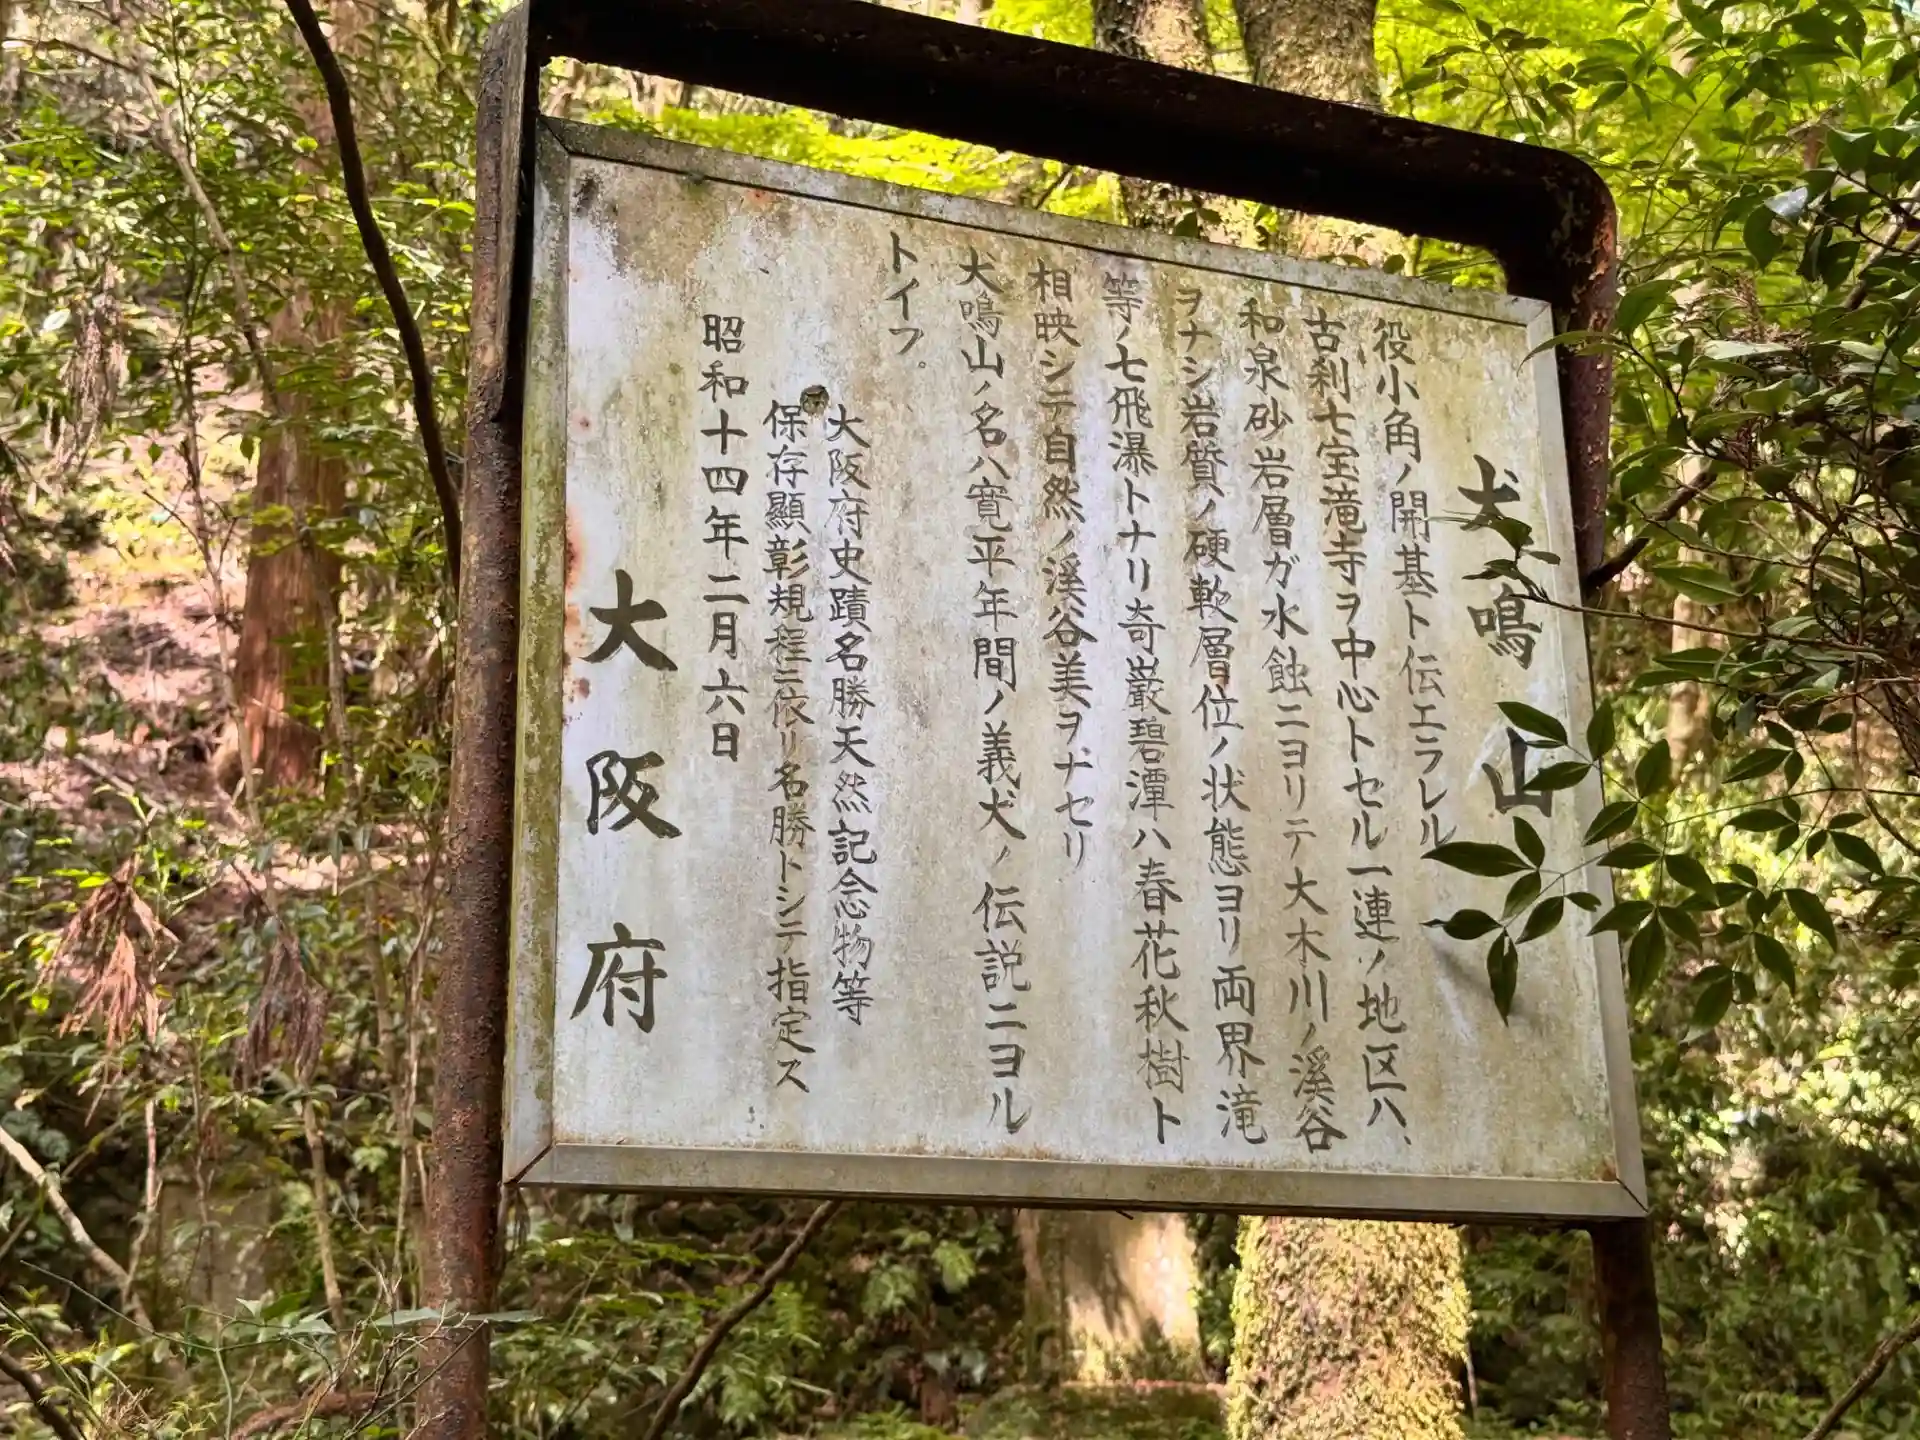 犬鳴山
役小角ノ開基ト伝エラレル
古刹七宝滝寺ヲ中心トセル一連ノ地区ハ、
和泉砂岩層ガ水蝕ニヨリテ大木川ノ溪谷
ヲナシ岩質ノ硬軟層位ノ状態ヨリ両界滝
等ノ七飛瀑トナリ奇巌碧潭ハ春花秋樹ト
相映シテ自然ノ溪谷美ヲナセリ
犬鳴山ノ名ハ寛平年間ノ義犬ノ伝説ニヨル
トイフ。
大阪府史蹟名勝天然記念物等
保存顯彰規程ニ依リ名勝トシテ指定ス
昭和十四年二月六日
大阪府